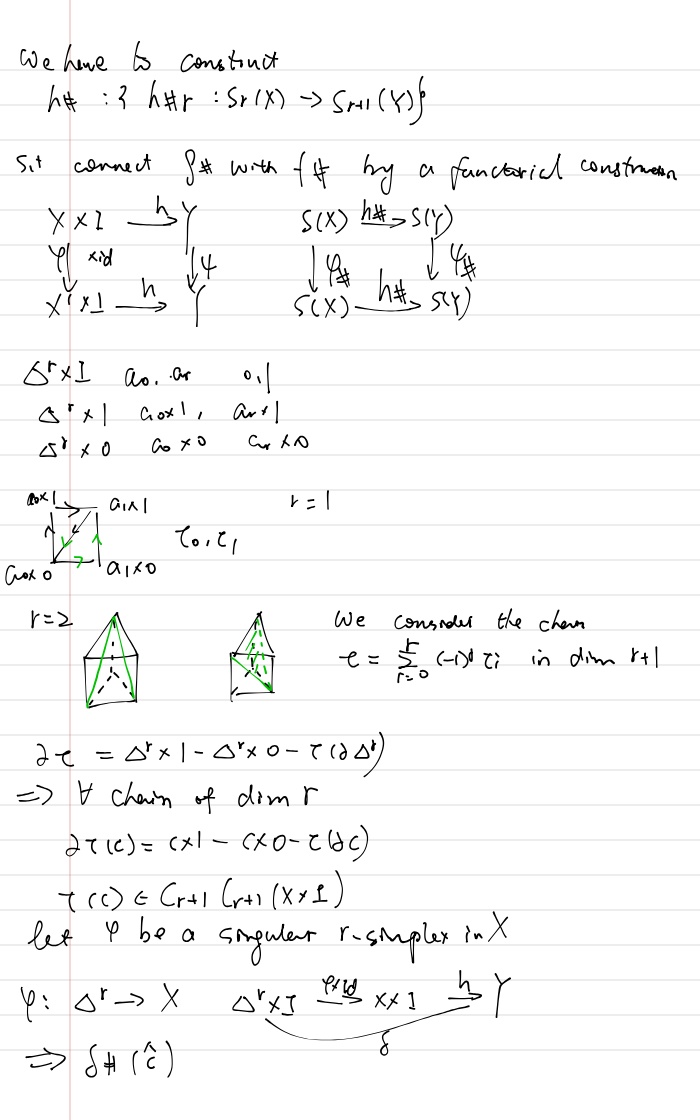 We have to construct
h# : { h#r : Sr(X) → Sr+1(Y)}
s.t connect g# with f# by a functorial construction
X × I →h Y S(X) →h# S(Y)
φ↓ × id ↓ψ ↓φ# ↓φ#
X' × I →h Y S(X) →h# S(Y)
Δ^r × I a0, .ar 0,1
Δ^r × 1 a0×1, ar×1
Δ^r × 0 a0 × 0 ar × 0
a0×1 a1×1 r = 1
τ0, τ1
a0×0 a1×0
r=2 We consider the chain
τ = Σ_{r=0}^{r} (-1)^i τi in dim r+1
∂τ = Δ^r × 1 - Δ^r × 0 - τ(∂Δ^r)
=> ∀ chain of dim r
∂τ(c) = c×1 - c×0 - τ(∂c)
τ(c) ∈ Cr+1 (r+1 (X×I)
let φ be a singular r-simplex in X
φ: Δ^r → X Δ^r×I →φ×id X×I →h Y
δ
=> δ# (ĉ)